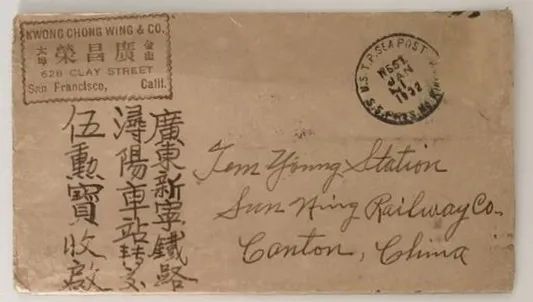 KWONG CHONG WING & CO.
金山
廣昌榮
大埠
628 CLAY STREET
San Francisco, Calif.
U.S.T.P. SEA POST
WEST
JAN
1922
廣東新寧鐵路
潯陽車站轉交
伍勳寶收啟
Tem Young Station
Sun Ning Railway Co.
Canton, China